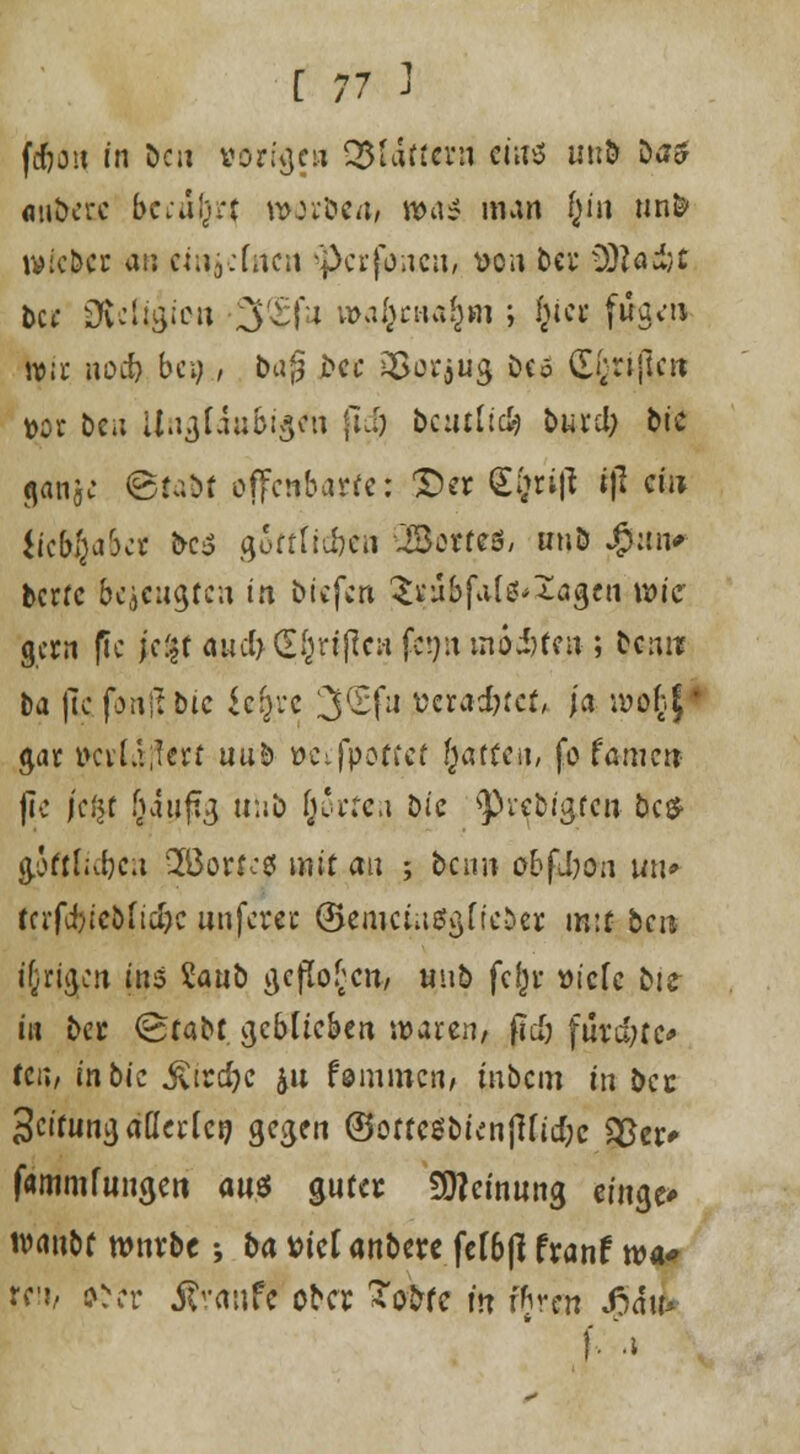 [ 77 ]
schon in den vorigen Blättern eins und das
andere berührt worden, was man hin und
wieder an einzelnen Personen, von der Macht
der Religion JEsu wahrnahm ; hier fügen
wir noch bey , daß der Vorzug des Christen
vor den Ungläubigen sich deutlich durch die
ganze Stadt offenbarte: Der Christ ist ein
Liebhaber des göttlichen Wortes, und Hun-
derte bezeugten in diesen Trübsals-Tagen wie
gern sie jetzt auch Christen seyn möchten ; denn
da sie sonst die Lehre JEsu verachtet, ja wohl
gar verlästert und verspottet hatten, so kamen
sie jetzt häufig und hörten die Predigten des
göttlichen Wortes mit an ; denn obschon un-
terschiedliche unserer Gemeinsglieder mit den
ihrigen ins Land geflohen, und sehr viele die
in der Stadt geblieben waren, sich fürchte-
ten, in die Kirche zu kommen, indem in der
Zeitung allerley gegen Gottesdienstliche Ver-
sammlungen aus guter Meinung einge-
wandt wurde ; da viel andere selbst krank wa-
ren, oder Kranke oder Todte in ihren Häu-